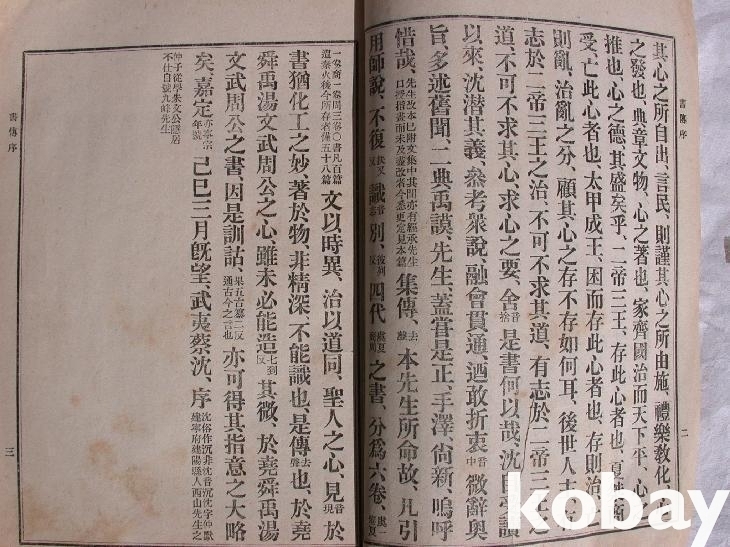 書傳序
二
其心之所自出、言民、則謹其心之所由施、禮樂敎化、心
之發也、典章文物、心之著也、家齊國治而天下平、心之
推也、心之德、其盛矣乎、二帝三王、存此心者也、夏桀商
受、亡此心者也、太甲成王、困而存此心者也、存則治、亡
則亂、治亂之分、顧其心之存不存如何耳、後世人主、有
志於二帝三王之治、不可不求其道、有志於二帝三王之
道、不可不求其心、求心之要、舍音捨是書何以哉、沈自受讀
以來、沈潛其義、參考衆說、融會貫通、迺敢折衷音中微辭奧
旨、多述舊聞、二典禹謨、先生、蓋嘗是正、手澤、尙新、嗚呼
惜哉、先生改本已附文集中其間亦有經承先生口授指畫而未及盡改者今悉更定見本篇集傳、去聲本先生所命故、凡引
用師說、不復扶又反識音志別、彼列反四代虞夏商周之書、分爲六卷、虞一夏
一卷商一卷周三卷〇書凡百篇遭秦火後今所存者僅五十八篇文以時異、治以道同、聖人之心、見音現於
書猶化工之妙、著於物、非精深、不能識也、是傳去聲也、於堯
舜禹湯文武周公之心、雖未必能造七到反其微、於堯舜禹湯
文武周公之書、因是訓詁、果五古慕二反通古今之言也亦可得其指意之大略
矣、嘉定亦寧宗年號己巳三月旣望、武夷蔡沈、序沈俗作沉非沈音沉沈字仲默建寧府建陽縣人西山先生之
仲子從學朱文公隱居不仕自號九峰先生
書傳序
三
kobay